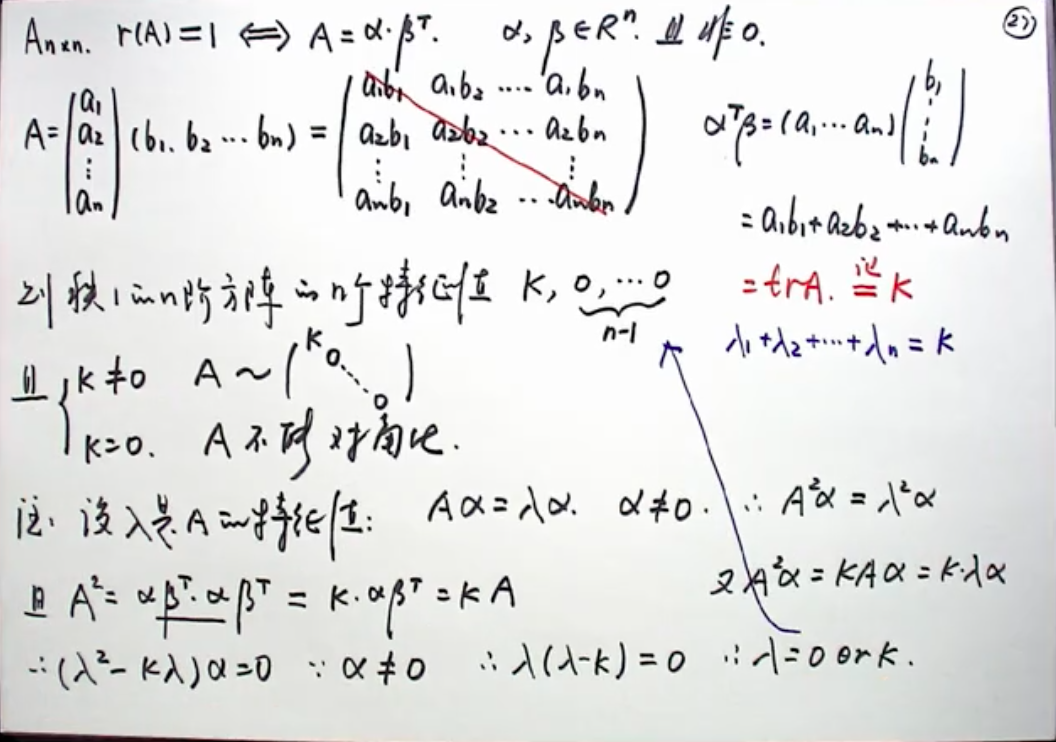 ㉗
Aₙₓₙ. r(A)=1 ⟺ A=α·βᵀ. α, β∈Rⁿ. 且 非0.
A=(a₁ a₂ ⋮ aₙ)(b₁, b₂ … bₙ) = (a₁b₁ a₁b₂ …. a₁bₙ
a₂b₁ a₂b₂ … a₂bₙ
⋮ ⋮ ⋮
aₙb₁ aₙb₂ … aₙbₙ)
αᵀβ=(a₁…aₙ)(b₁ ⋮ bₙ)
=a₁b₁+a₂b₂+…+aₙbₙ
=trA. 记= K
λ₁+λ₂+…+λₙ=K
则 秩1的n阶方阵的n个特征值 K, 0, … 0
n-1
且 { K≠0 A~(K 0 ⋱ 0)
K=0. A不可对角化.
注: 设λ是A的特征值: Aα=λα. α≠0. ∴ A²α=λ²α
且 A²=αβᵀ·αβᵀ=K·αβᵀ=KA 又A²α=KAα=K·λα
∴(λ²-Kλ)α=0 ∵ α≠0 ∴ λ(λ-K)=0 ∴λ=0 or K.